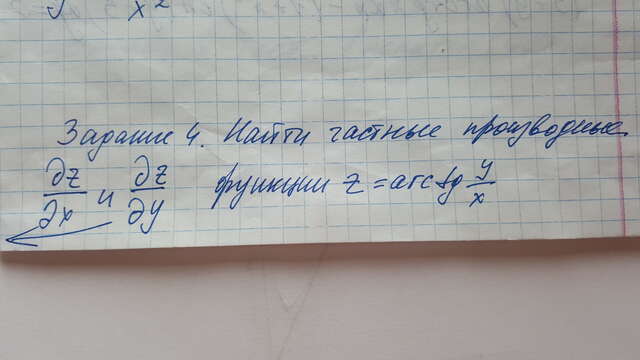 x²
Задание 4. Найти частные производные
∂z/∂x и ∂z/∂y функции z = arctg y/x